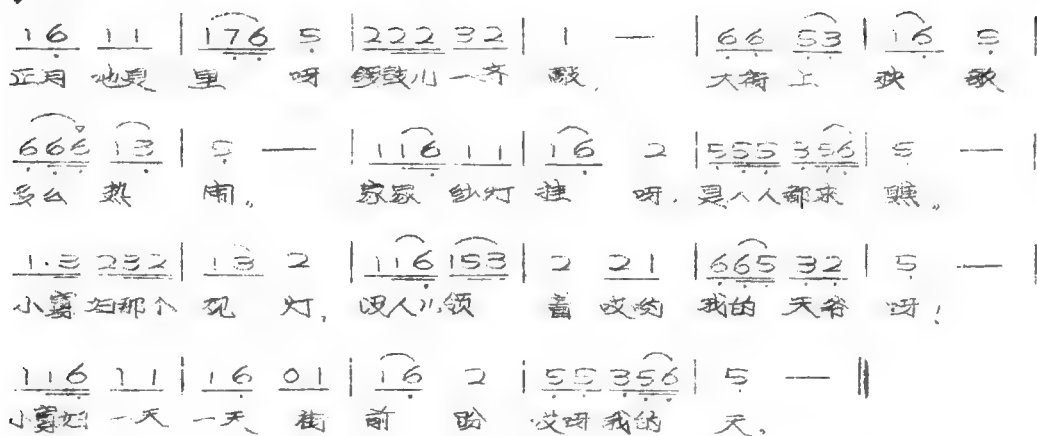 1 6 1 1 | 1 7 6 5 | 2 2 2 3 2 | 1 — | 6 6 5 3 | 1 6 5 |
正月 地里 里 呀 锣鼓儿 一齐 敲, 大街 上 秧 歌
6 6 6 1 3 | 5 — | 1 1 6 1 1 | 1 6 2 | 5 5 5 3 5 6 | 5 — |
多么 热 闹。 家家 纱灯 挂 呀, 是人人都来 瞧。
1·3 2 3 2 | 1 3 2 | 1 1 6 1 5 3 | 2 2 1 | 6 6 5 3 2 | 5 — |
小寡妇那个 观 灯, 没人儿领 着 哎哟 我的 天爷 呀!
1 1 6 1 1 | 1 6 0 1 | 1 6 2 | 5 5 3 5 6 | 5 — ‖
小寡妇 一天 一天 街 前 盼 哎呀 我的 天。